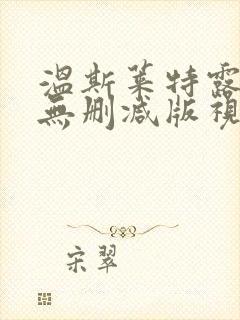 温斯莱特露
無删减版視
宋翠